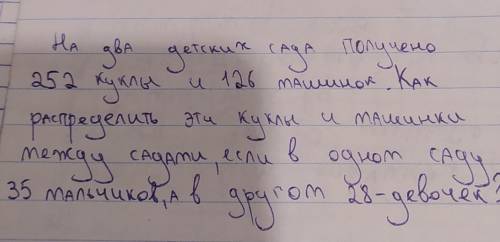 На два детских сада получено
252 куклы и 126 машинок. Как
распределить эти куклы и машинки
между садами, если в одном саду
35 мальчиков, а в другом 28-девочек?